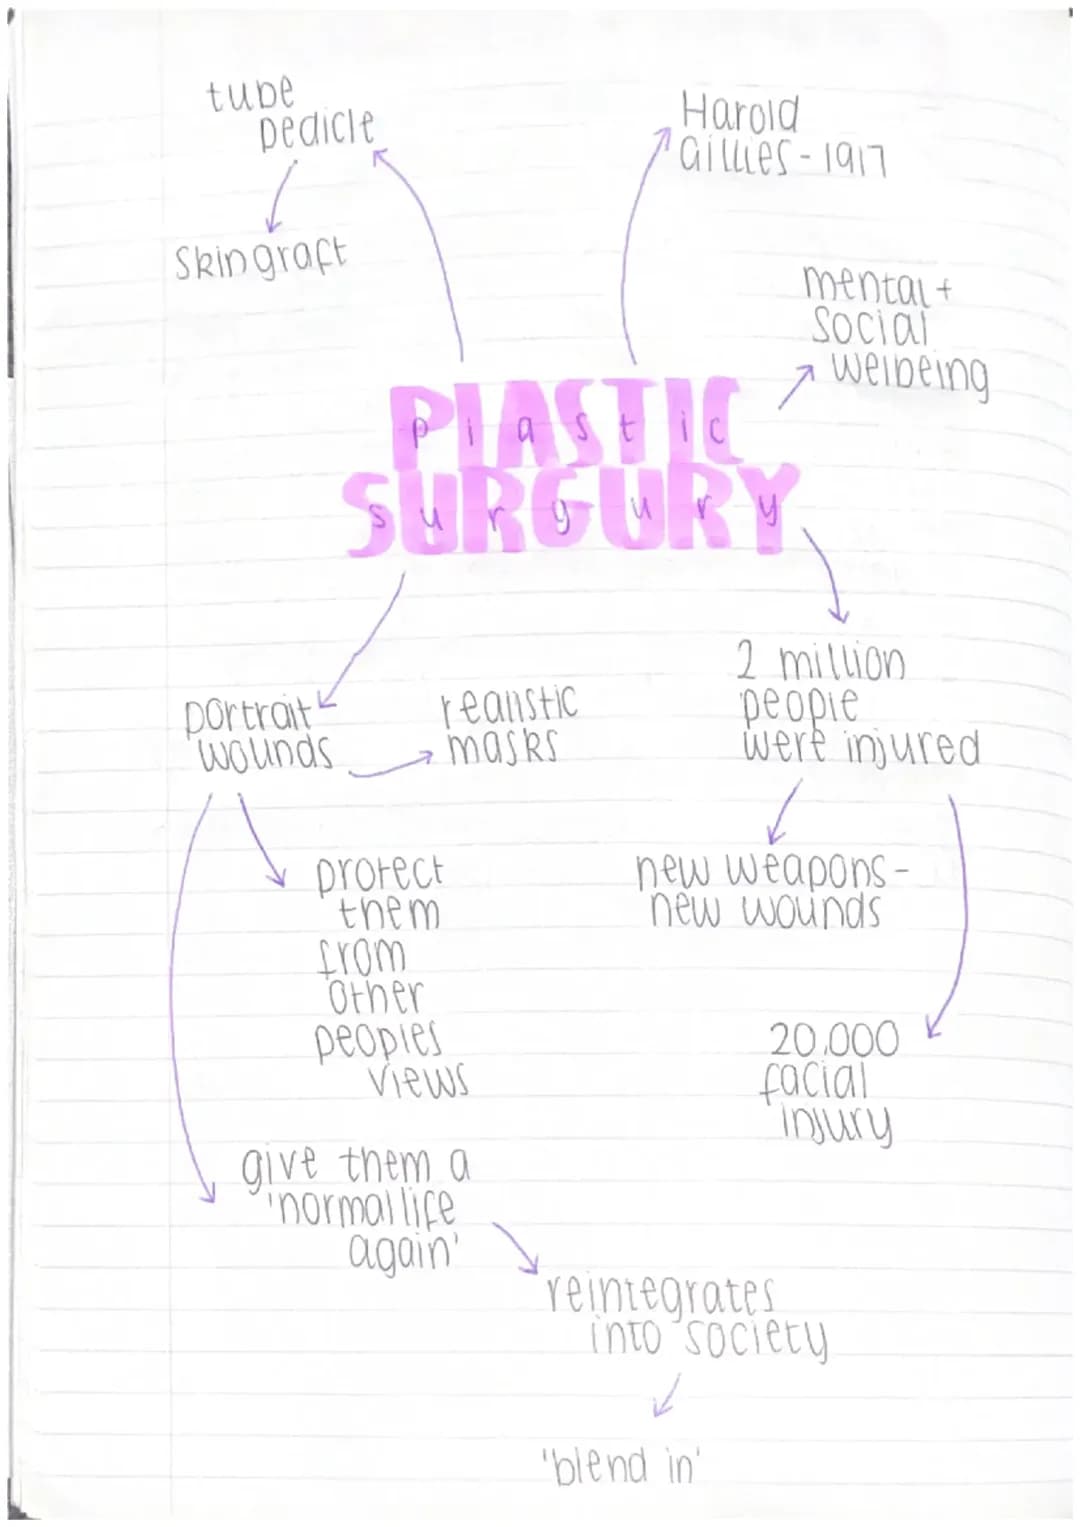 tube
pedicle
skin graft
Harold
Gillies - 1917
mental +
social
welbeing
PLASTIC
plastic
SURGURY
surgury
portrait
wounds
realistic
masks
2 million
people
were injured
protect
them
from
other
peoples
views
new weapons -
new wounds
20,000
facial
injury
give them a
'normal life
again'
reintegrates
into society
'blend in'